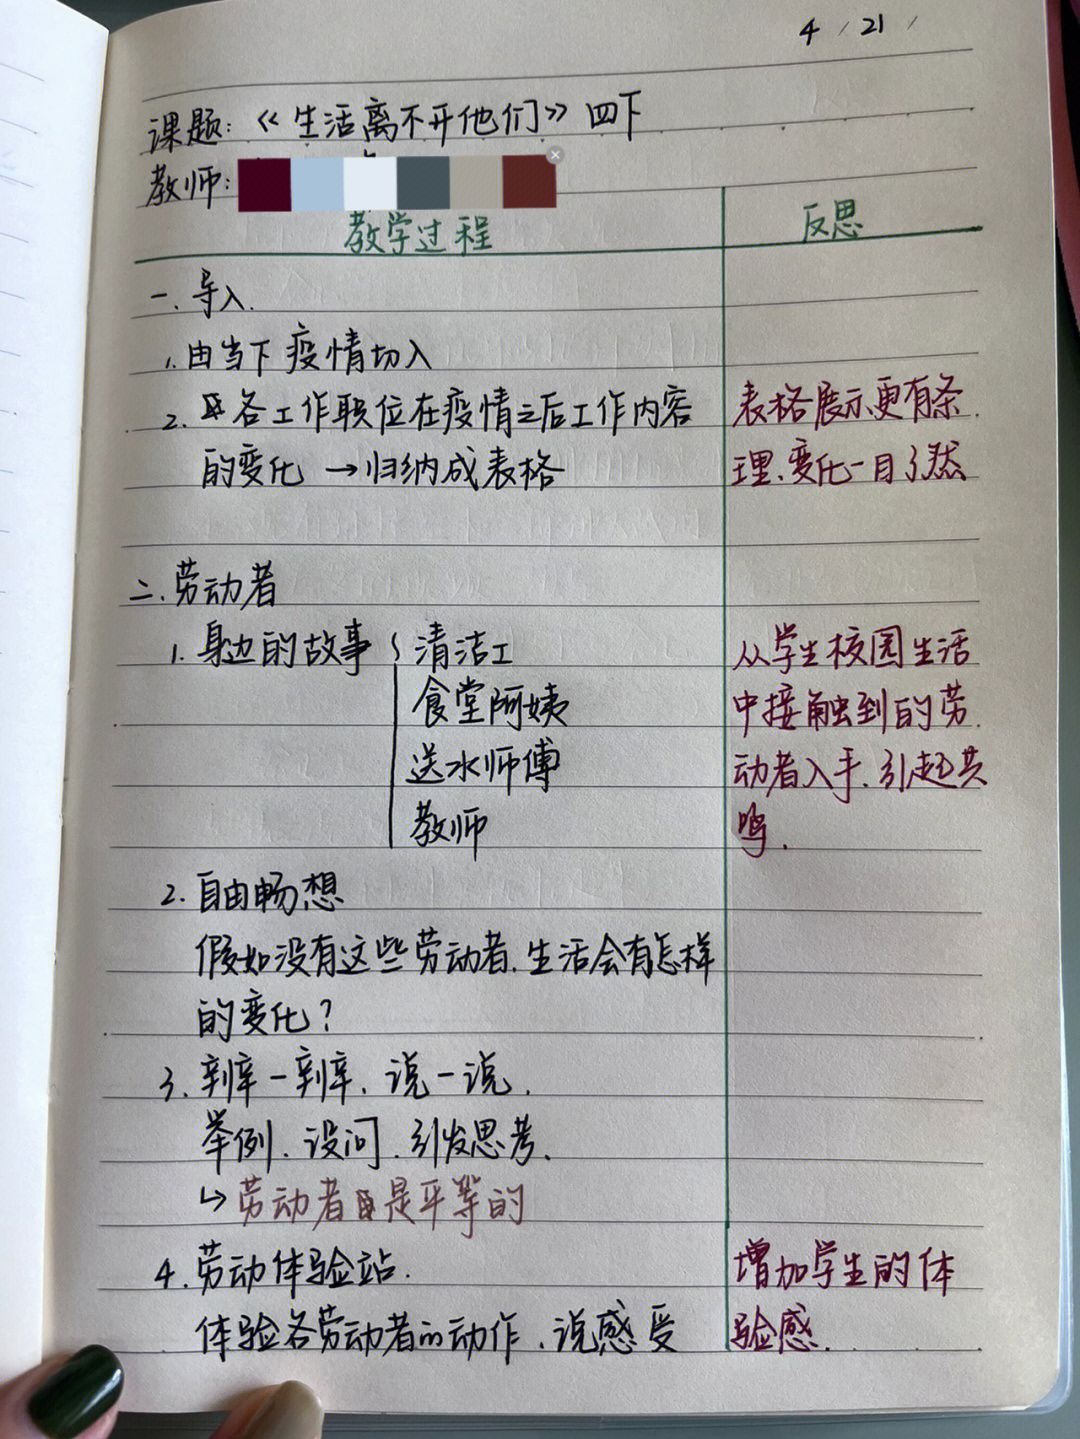 4 / 21 /
课题:《生活离不开他们》四下
教师:
教学过程 反思
一.导入.
1.由当下疫情切入
2.各工作职位在疫情之后工作内容
的变化→归纳成表格
表格展示更有条
理、变化一目了然
二.劳动者
1.身边的故事{清洁工
食堂阿姨
送水师傅
教师
从学生校园生活
中接触到的劳
动者入手、引起共
鸣.
2.自由畅想
假如没有这些劳动者、生活会有怎样
的变化?
3.辩一辩、说一说.
举例、设问、引发思考、
↳劳动者是平等的
4.劳动体验站.
体验各劳动者的动作、说感受
增加学生的体
验感.